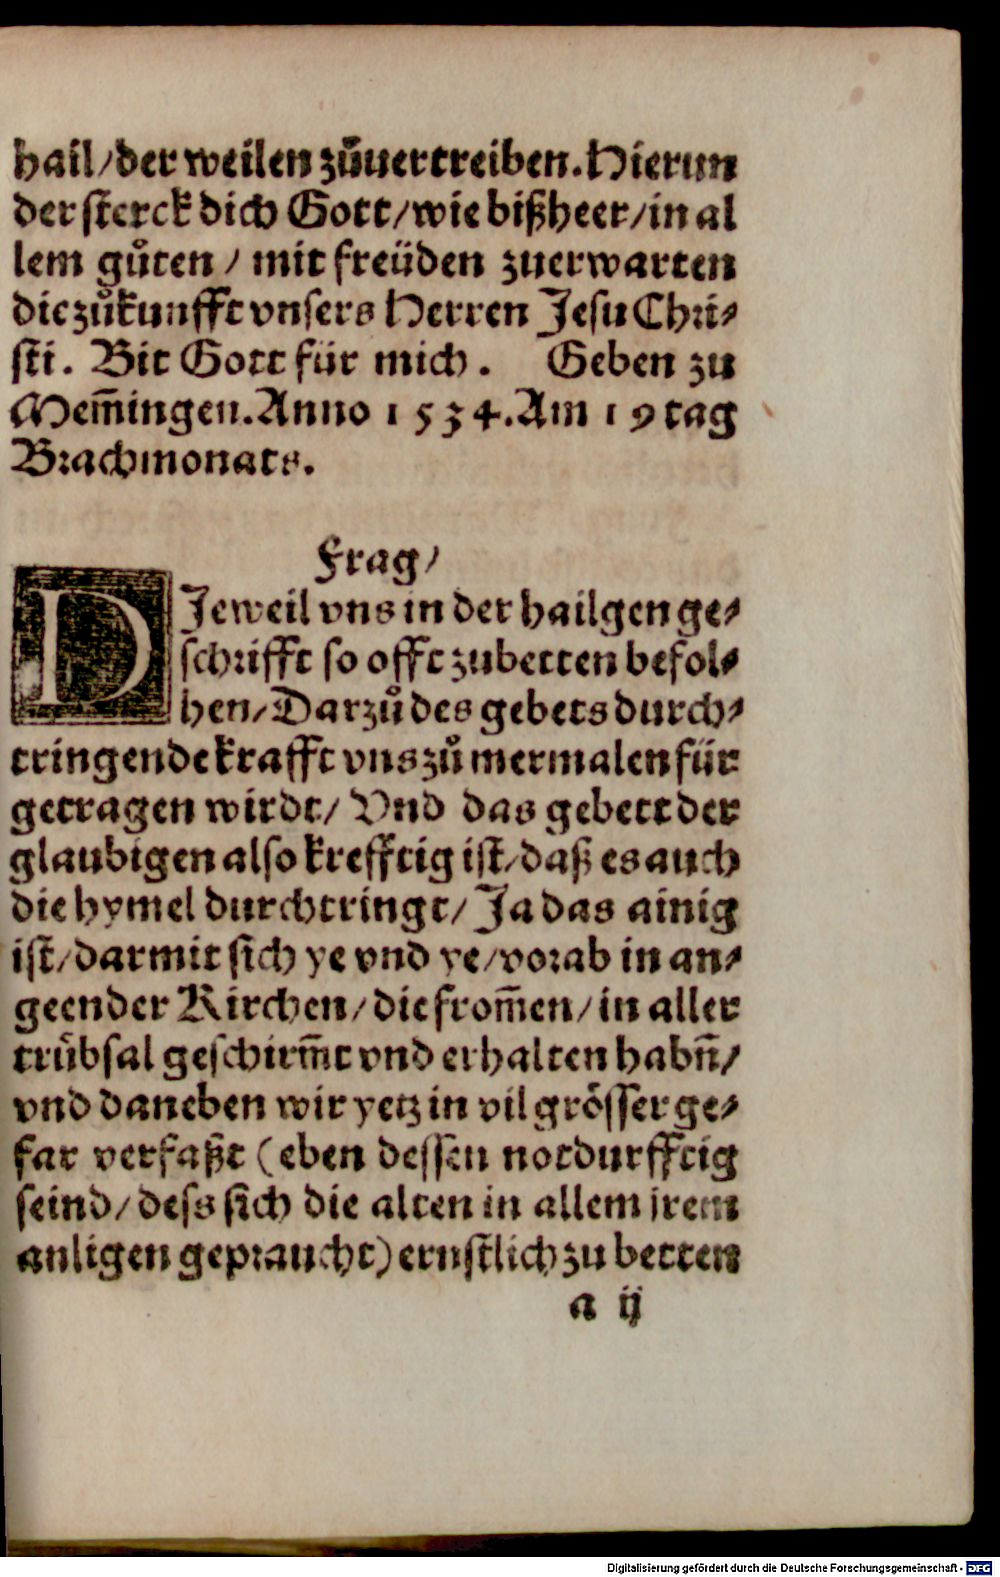 hail/der weilen zůuertreiben. Hierun
der sterck dich Gott/wie bißheer/in al
lem gůten / mit freüden zuerwarten
die zůkunfft vnsers Herren Jesu Chri⸗
sti. Bit Gott für mich. Geben zu
Mem̄ingen. Anno 1534. Am 19 tag
Brachmonats.
Frag/
DJeweil vns in der hailgen ge⸗
schrifft so offt zubetten befol⸗
hen/Darzů des gebets durch⸗
tringende krafft vns zů mermalen für
getragen wirdt/ Vnd das gebett der
glaubigen also krefftig ist/daß es auch
die hymel durchtringt/ Ja das ainig
ist/darmit sich ye vnd ye/vorab in an⸗
geender Kirchen/die from̄en/in aller
trübsal geschirm̄t vnd erhalten habn̄/
vnd daneben wir yetz in vil grösser ge⸗
far verfaßt (eben dessen notdurfftig
seind/dess sich die alten in allem jrem
anligen gepraucht) ernstlich zu betten
a ij
Digitalisierung gefördert durch die Deutsche Forschungsgemeinschaft - DFG